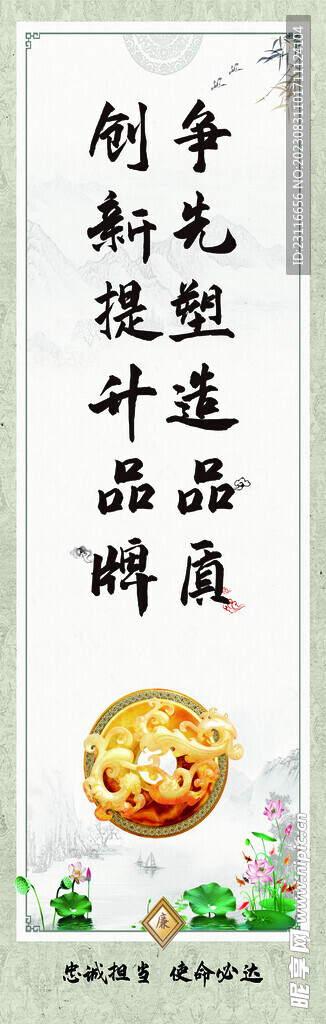 争先塑造品质
创新提升品牌
廉
忠诚担当 使命必达
ID:23116656 NO:20230831101711124104
昵享网 www.nipic.cn